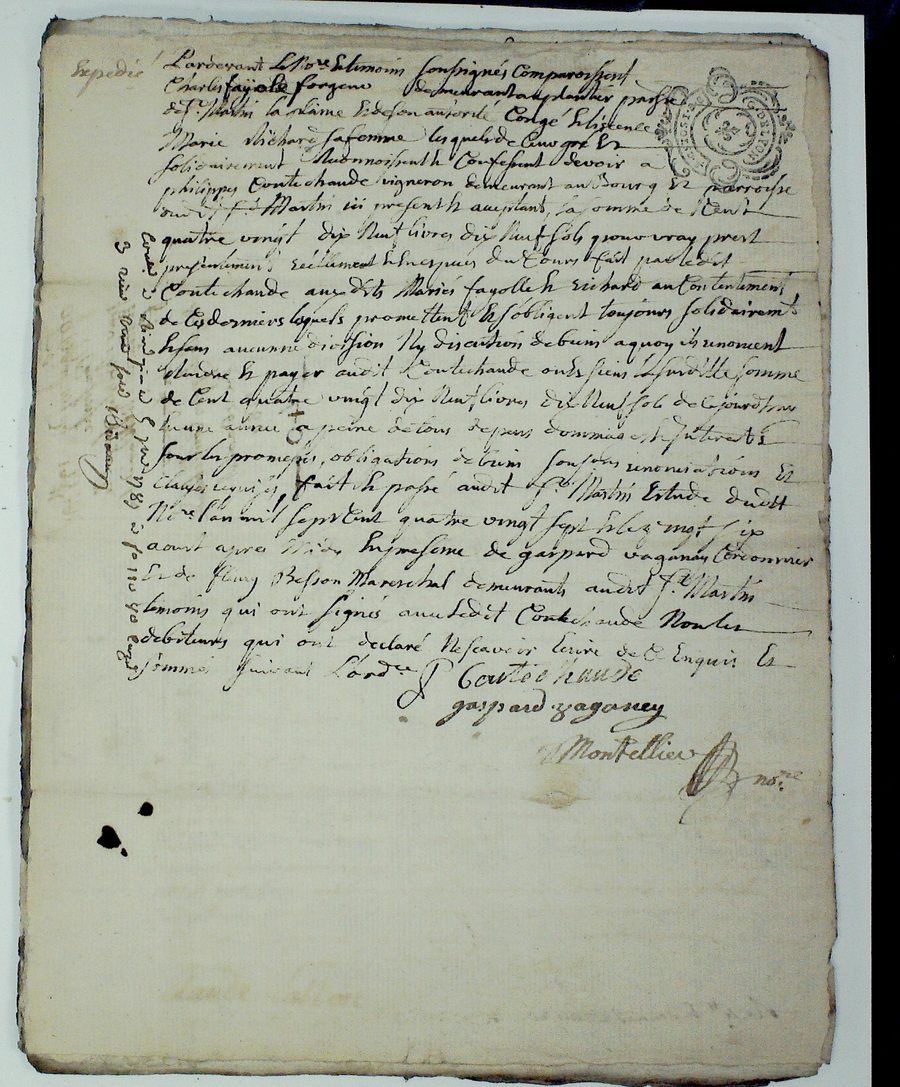 Expedié
Pardevant Le No.re Et temoins soussignés Comparoissent
Charles fayolle forgeur demeurant au plantier parroisse
de S.t Martin la plaine Et de son autorité Congé Et licence
Marie Richard sa femme lesquels de leur gré Et
solidairement Reconnoissent Et Confessent devoir a
philippes Coutechaude vigneron demeurant au Bourg Et parroisse
dud.t S.t Martin ici present Et aceptant, la somme de Cent
quatre vingt dix Neuf livres dix Neuf sols pour vray prest
presentement réellement Et en espèces du Cours fait par ledit
Coutechaude aux dits Mariés fayolle Et richard au Contentement
de Ces derniers lequels promettent Et s'obligent toujours solidairem.t
Et sans aucunne division Ny discution de biens a quoy ils renoncent
de rendre Et payer audit Coutechaude ou Es siens la susditte somme
de Cent quatre vingt dix Neuf livres dix Neuf sols de Ce jourdhuy
En une année a peine de tous depens dommages Et Interests
sous les promesses, obligations de biens soumissions renonciations Et
Clauses requises fait Et passé audit S.t Martin Etude dudit
No.re l'an mil sept Cent quatre vingt sept Et le vingt six
aoust apres Midy En presence de gaspard vaganay Cordonnier
Et de fleury Besson Mareschal demeurants audit S.t Martin
temoins qui ont signés avec ledit Coutechaude Non les
debiteurs qui ont declaré Ne scavoir Ecrire de Ce Enquis Et
sommés suivant L'ord.ce
P Coutechaude
gaspard vaganey
Montellier no.re
Cont. a 1787
GENERALITE DE LYON